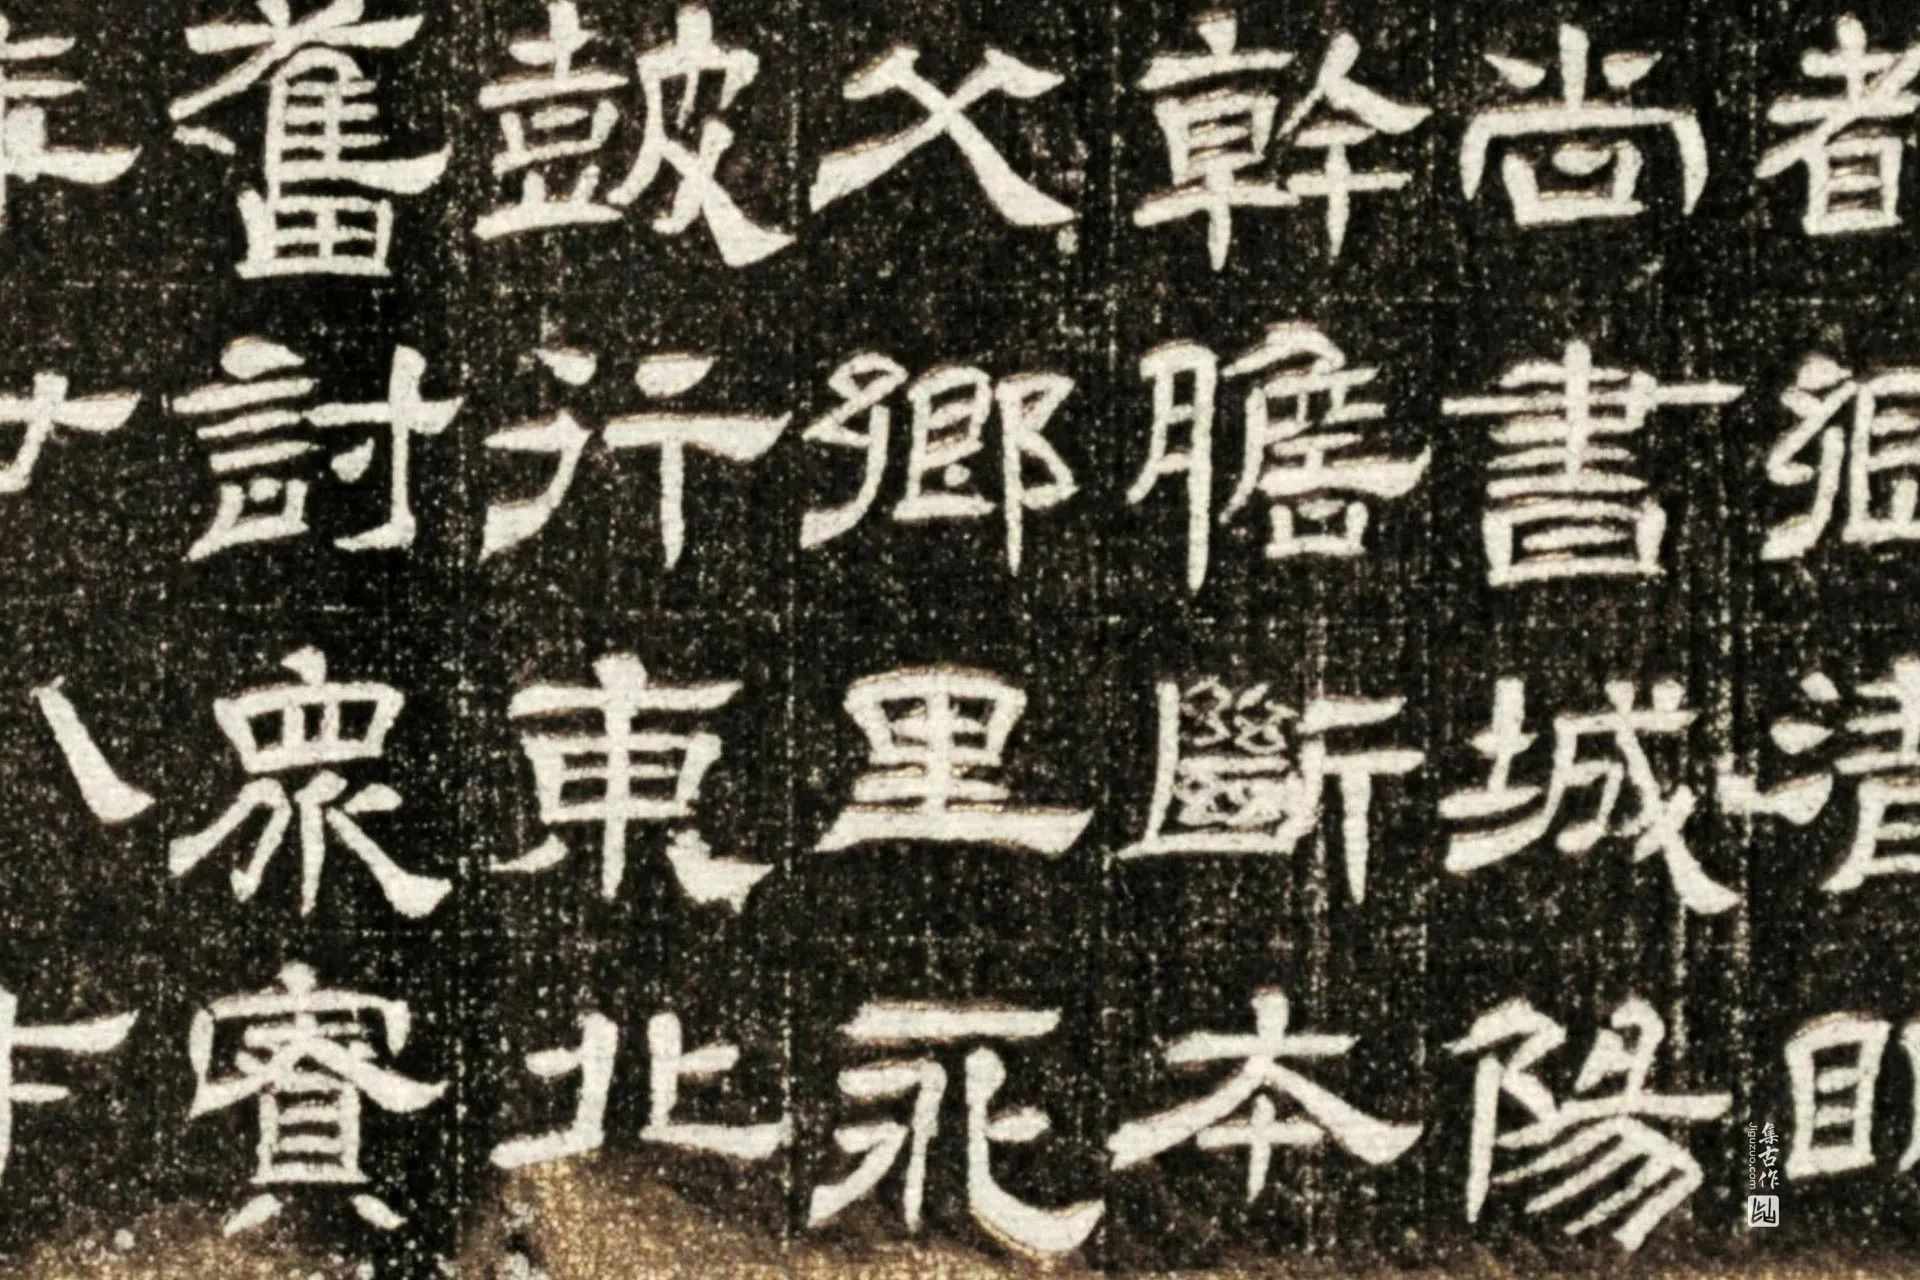 者清
尚書城陽
幹膽斷本
父鄉里永
鼓行東北
奮討衆賓
集古作
Jiguzuo.com